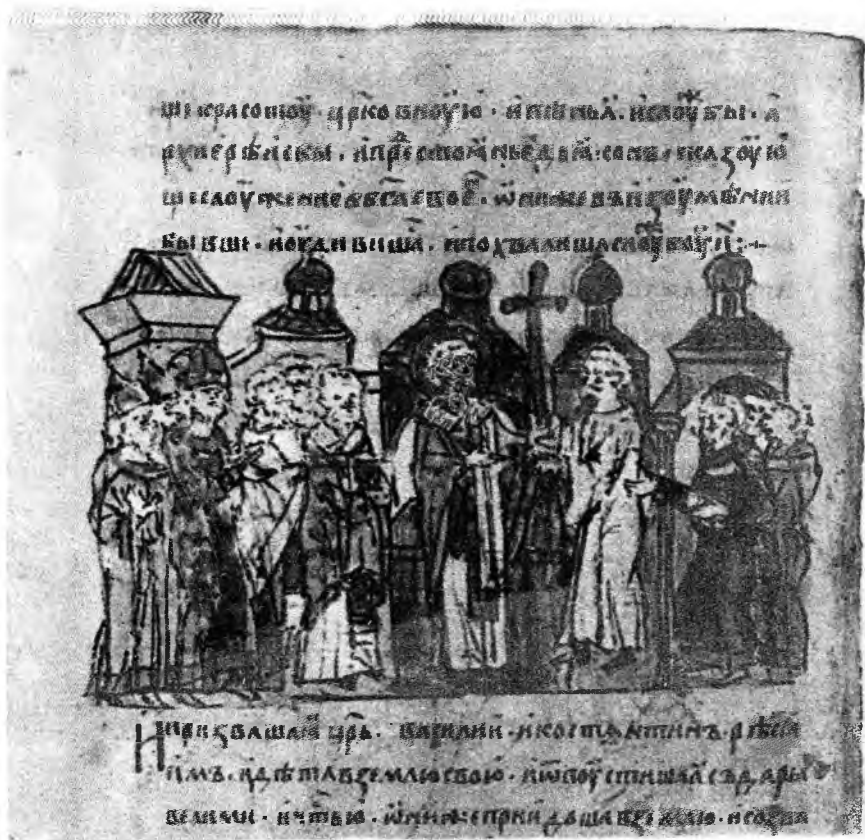 щи красотоу · црк҃овноую · и пѣньꙗ · и слоужбы · а
рхиерѣискы · и прⷭ҇стоꙗнье · сказоую
щи слоужение своего · ѡни же въ изоумѣнии
бывши · и оудивиша · и похвалиша слоужбоу и҃ :~
И призваша ꙗ цр҃ь · василии · и костѧнтинъ · рѣста
имъ · идѣта в землю свою · и ѿпоустиша ꙗ съ дары
велики · и чт҃ью · ѡни же приидоша в землю · и созва